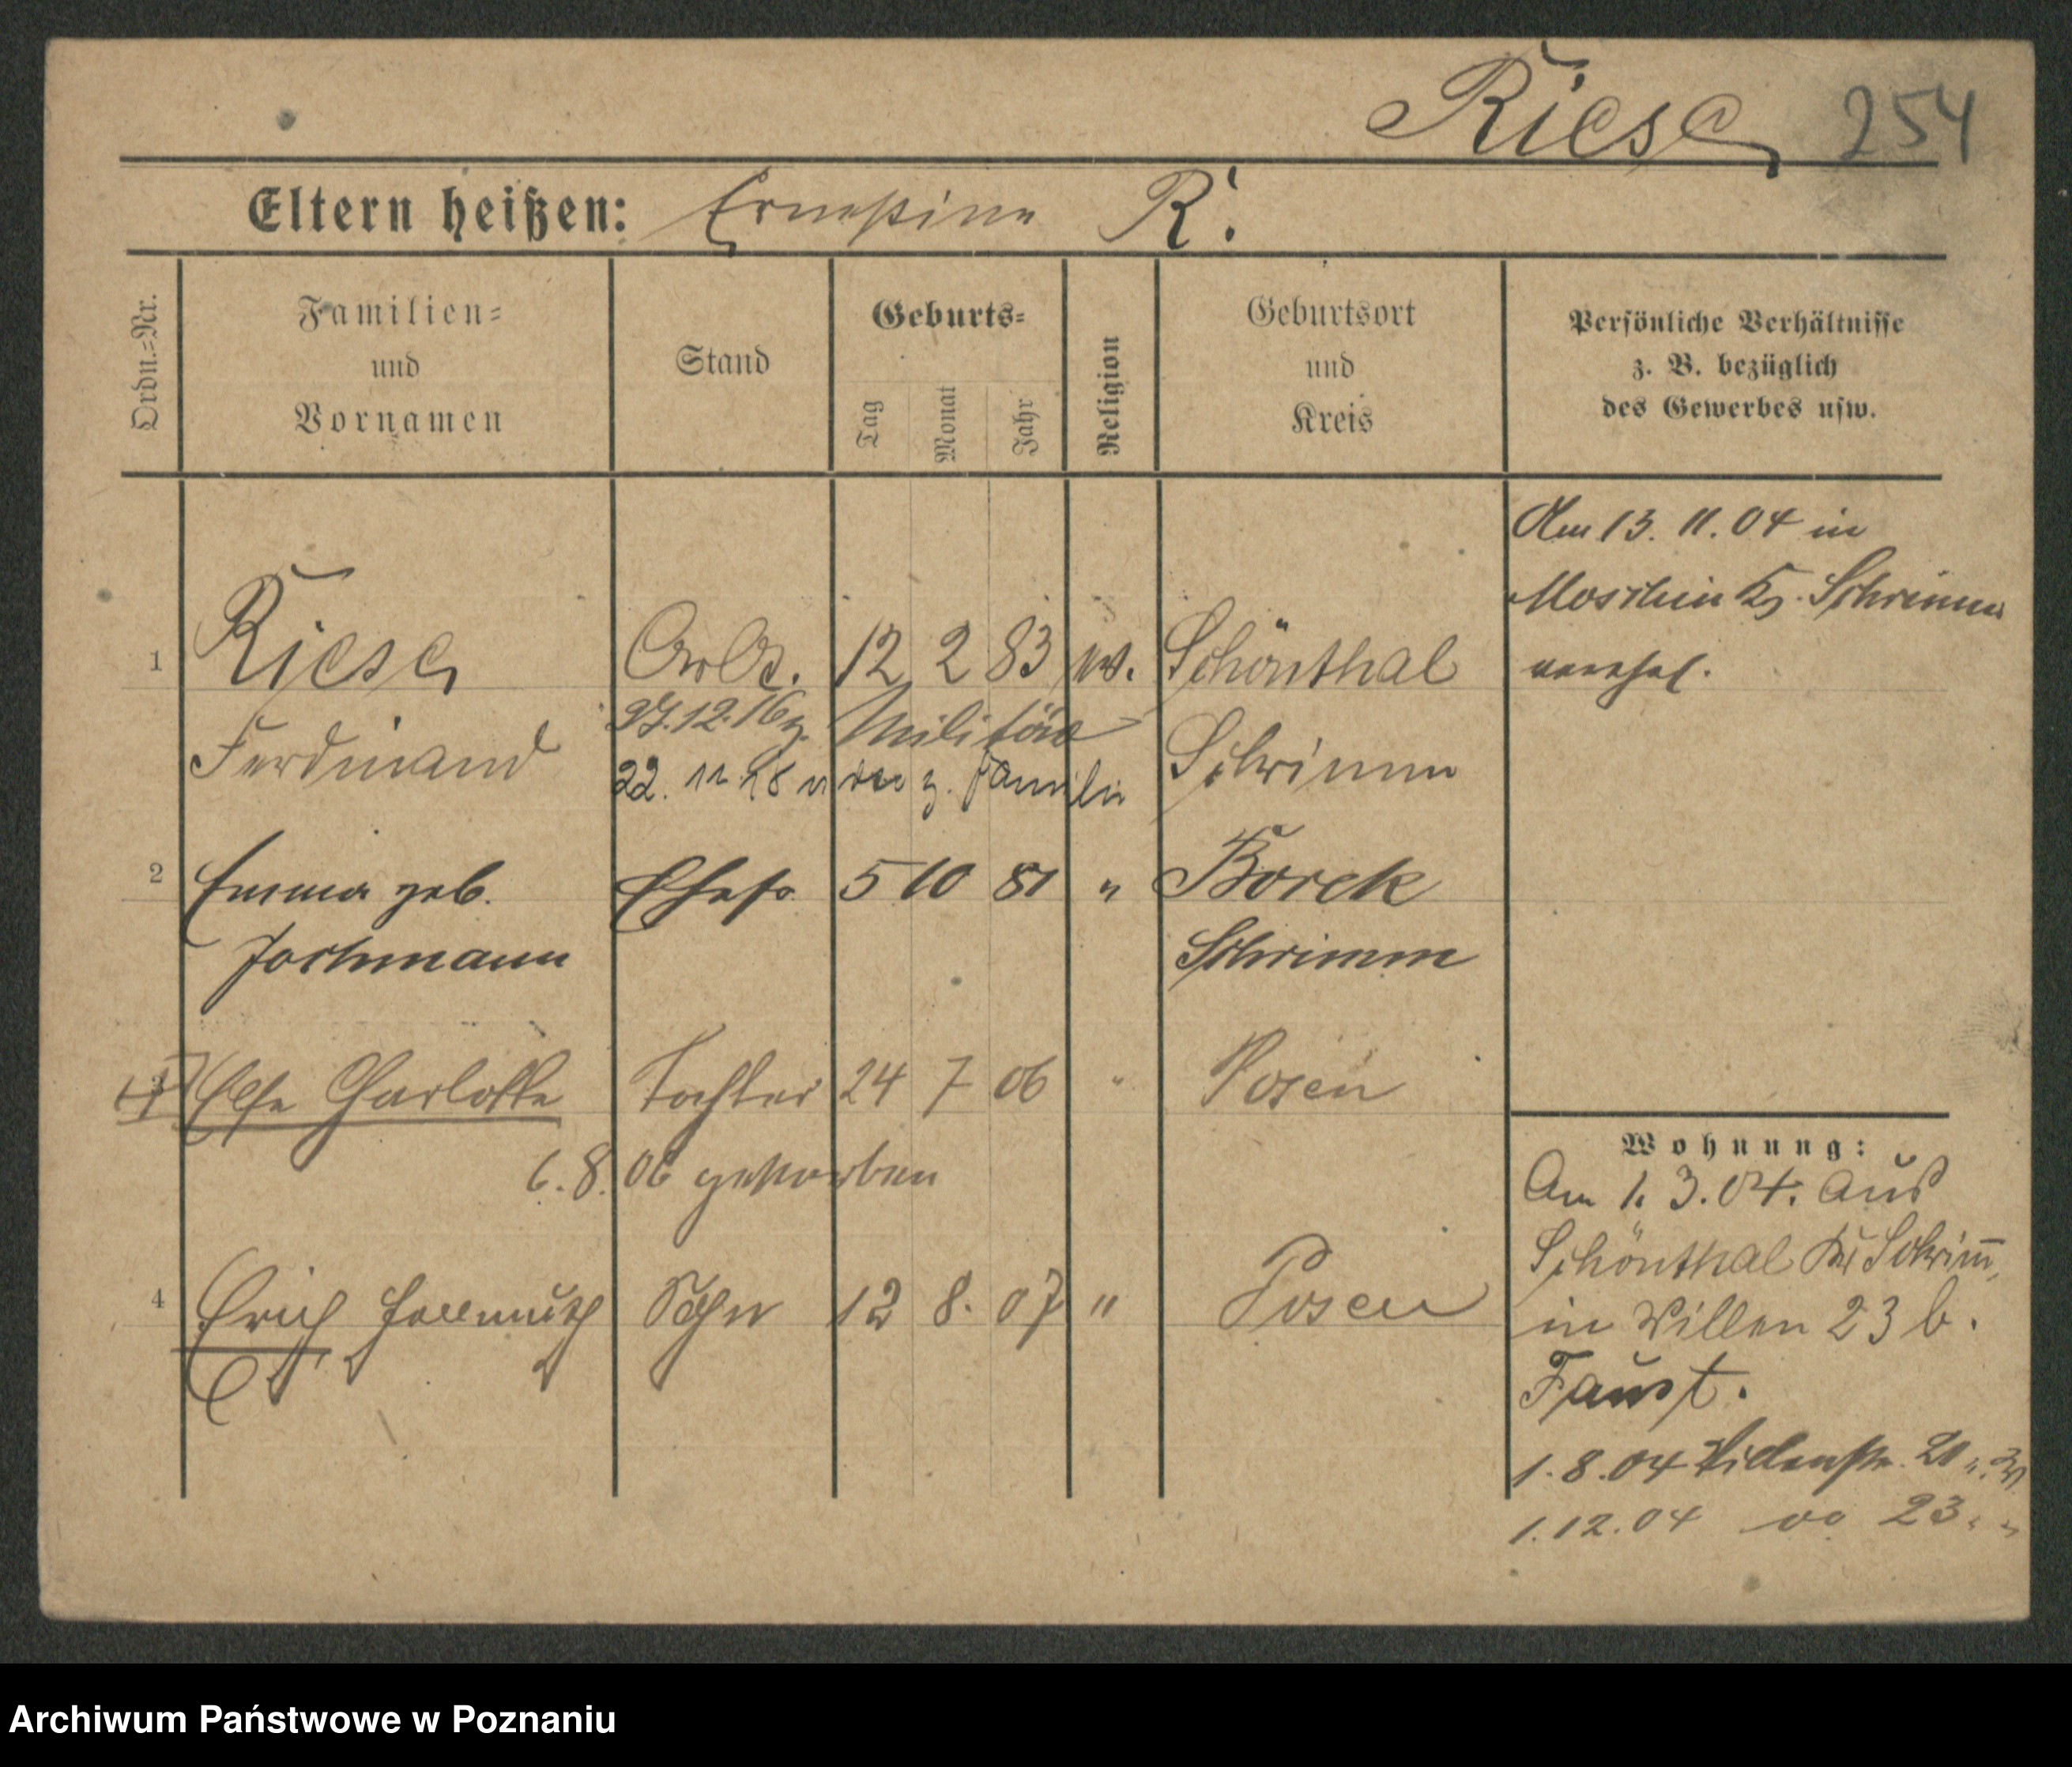 Riese 254
Eltern heißen: Ernestine R.
Ordn.=Nr.
Familien=
und
Vornamen
Stand
Geburts=
Tag
Monat
Jahr
Religion
Geburtsort
und
Kreis
Persönliche Verhältnisse
z. B. bezüglich
des Gewerbes usw.
Am 13. 11. 04 in
Moschin Kr. Schrimm
verehel.
1 Riese Arb. 12 2 83 ev. Schönthal
27.12.16 z. Militär
Ferdinand Schrimm
22. 11. 18 z. Familie
2 Emma geb. Ehefr. 5 10 81 " Borek
Jochmann Schrimm
3 Else Charlotte Tochter 24 7 06 " Posen
6.8.06 gestorben
4 Erich Hellmuth Sohn 12 8. 07 " Posen
Wohnung:
Am 1. 3. 04. aus
Schönthal Kr Schrim̄,
in Wilden 23 b.
Faust.
1.8.04 21
1.12.04 do 23
Archiwum Państwowe w Poznaniu